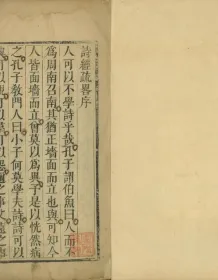 詩經疏畧序
人可以不學詩乎哉孔子謂伯魚曰人而不
為周南召南其猶正墻面而立也與可知今
人皆面墻而立曾莫以為異于是以恍然病
之孔子教門人曰小子何莫學夫詩詩可以